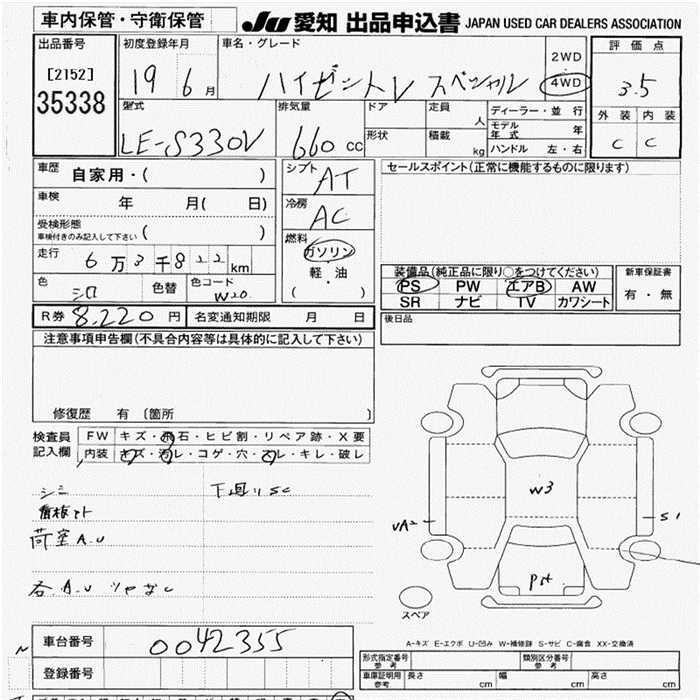 車内保管・守衛保管
JU 愛知 出品申込書 JAPAN USED CAR DEALERS ASSOCIATION
出品番号
[2152]
35338
初度登録年月
19 6 月
車名・グレード
ハイゼットV スペシャル
2WD
4WD
評価点
3.5
外装 内装
C C
型式
LE-S330V
排気量
660 CC
ドア
形状
定員
人
積載
kg
ディーラー・並行
モデル年式 年
ハンドル 左・右
車歴
自家用・( )
車検
年 月( 日)
受検形態
車検付きのみ記入して下さい ( )
走行
6万3千822km
色
シロ
色替
色コード
W20
シフト
AT
冷房
AC
燃料
ガソリン
軽・油
( )
セールスポイント(正常に機能するものに限ります)
装備品(純正品に限り○をつけてください)
PS PW エアB AW
SR ナビ TV カワシート
新車保証書
有・無
R券 8,220 円
名変通知期限 月 日
後日品
注意事項申告欄(不具合内容等は具体的に記入して下さい)
修復歴 有 〔箇所 〕
検査員
記入欄
FW キズ・飛石・ヒビ割・リペア跡・X要
内装 キズ・汚レ・コゲ・穴・スレ・キレ・破レ
シミ
下廻りSC
荷室A.U
各A.U ツヤなし
W3
S1
スペア
A-キズ E-エクボ U-凹み W-補修跡 S-サビ C-腐食 XX-交換済
車台番号
0042355
登録番号
形式指定番号
参考
類別区分番号
参考
車庫証明用
参考
長さ cm
幅 cm
高さ cm